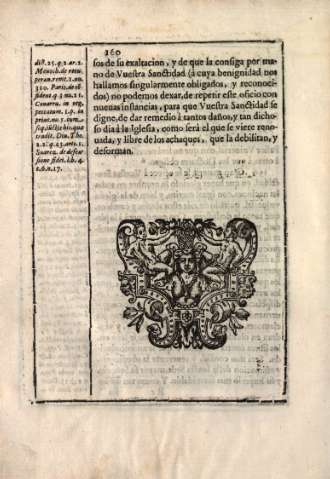 160
sos de su exaltacion, y de que la consiga por ma
no de Vuestra Sanctidad (à cuya benignidad nos
hallamos singularmente obligados, y reconoci-
dos) no podemos dexar, de repetir este oficio con
nueuas instancias, para que Vuestra Sanctidad se
digne, de dar remedio à tantos daños, y tan dicho-
so dia à la Iglesia, como serà el que se viere reno-
uada, y libre de los achaques, que la debilitan, y
deforman.
dist. 25. q. 2. ar. 2.
peran. remit. 2. nu.
350. Paris. de
q. 3. nu. 21.
Couarru. in reg.
peccatum. 2. p. in
princ. nu. 5. cum
tradit. Diu. Tho.
2. 2. q. 43. artic. 1.
Suarez. de defen-
sione fidei. lib. 4.